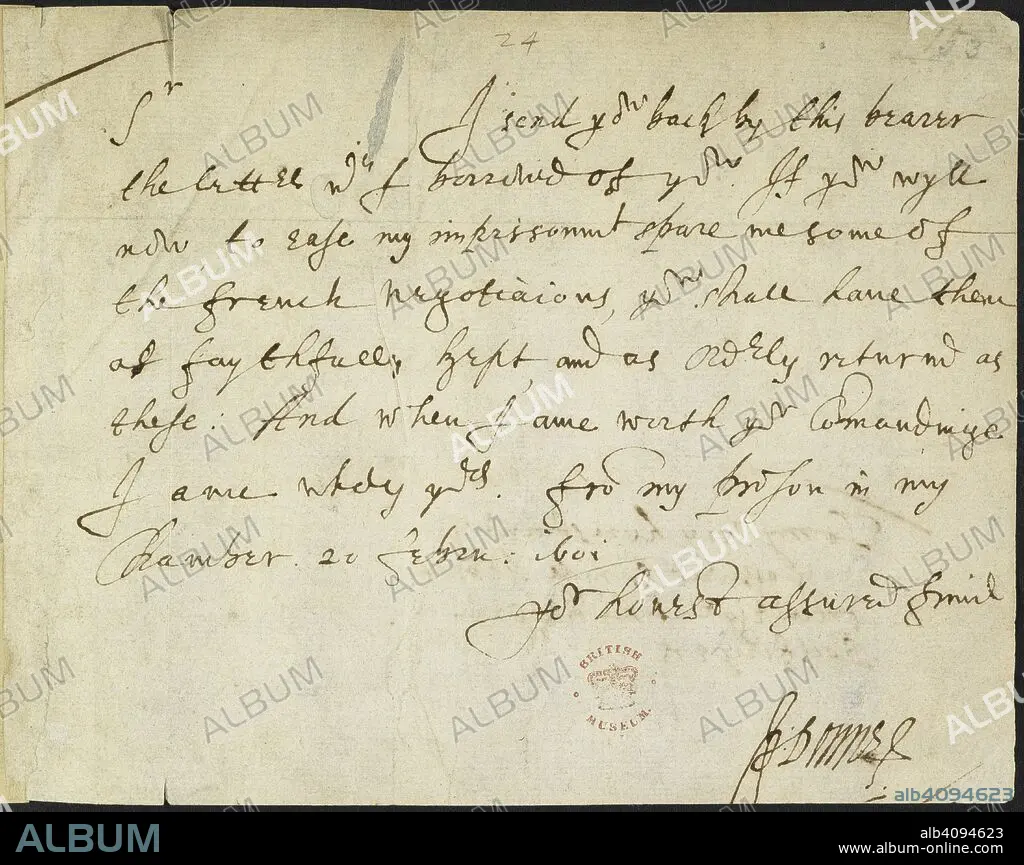 24
153
Sr I send yow back by this bearer
the letters wch I borrowed of yow. If yow wyll
now to ease my imprisonmt spare me some of
the french negotiaions, yow shall have them
as faythfully kept, and as ordely returnd as
these: And when I ame worth yor Comandinge
I ame wholy yors. Fro my prison in my
Chamber. 20 Febru: 1601
yor honest assured frind
J: Donne
BRITISH
MUSEUM.
alb4094623
ALBUM
alb4094623
www.album-online.com